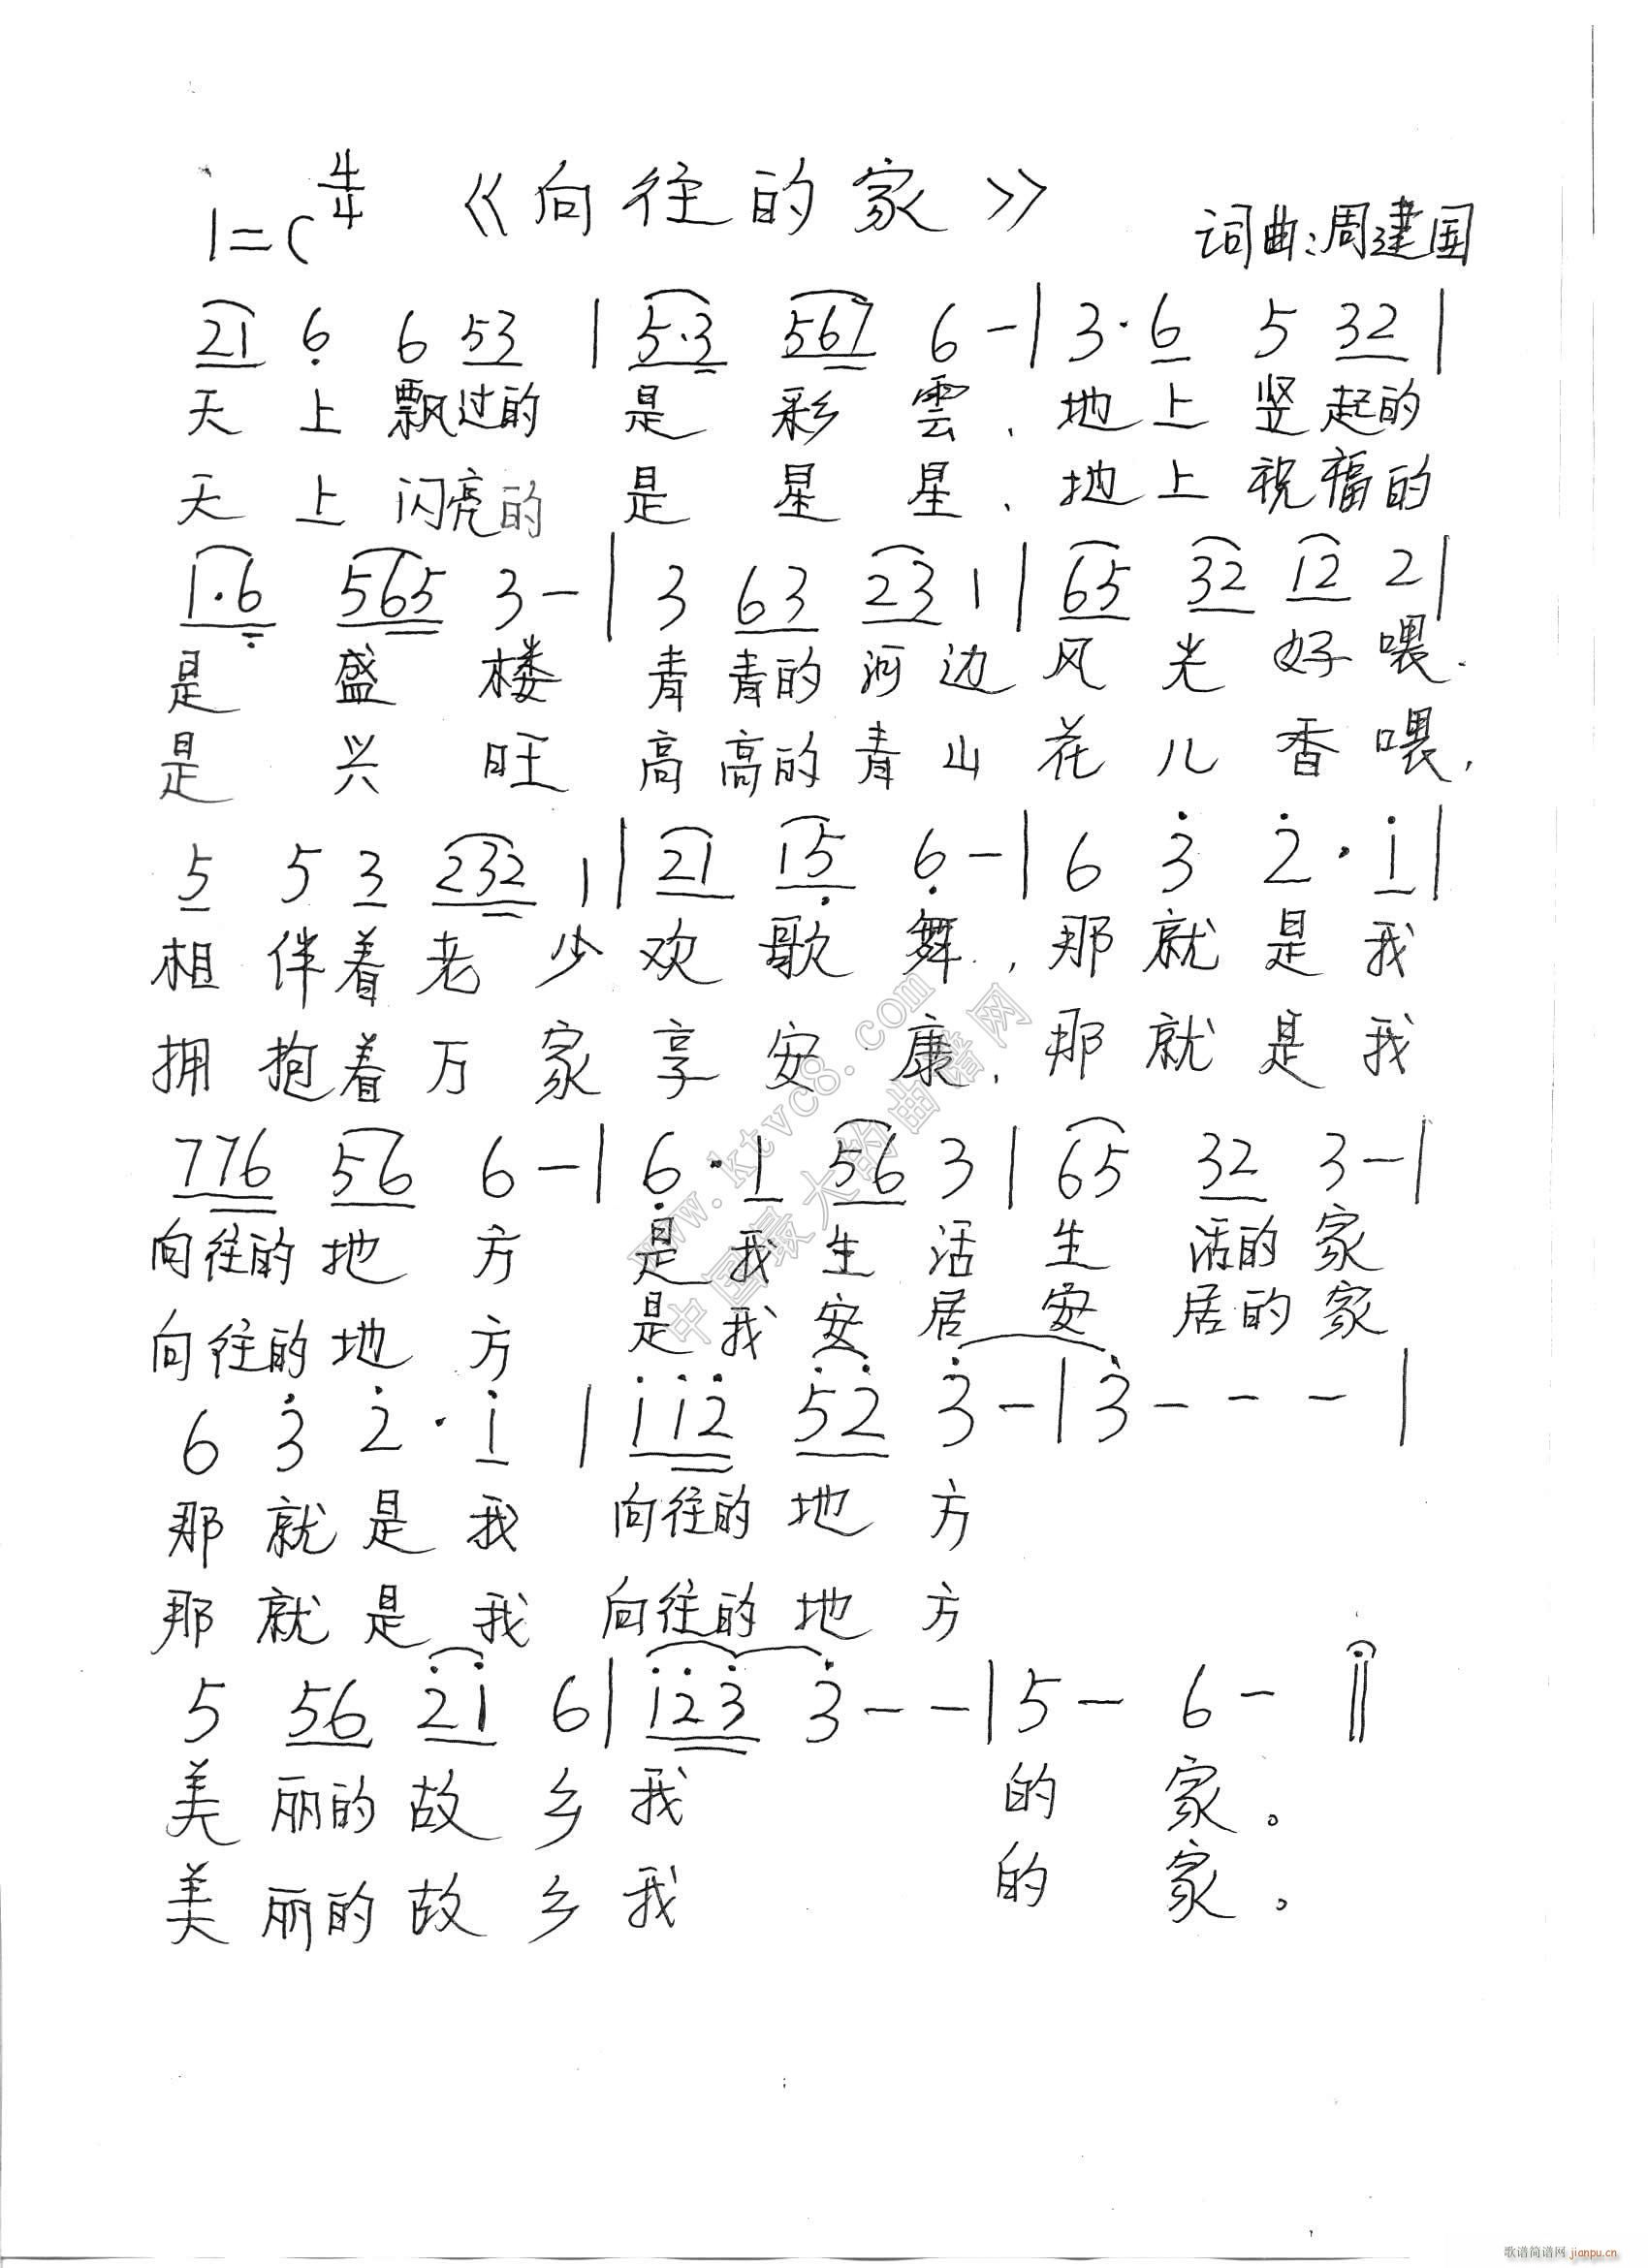 1=C 4/4 《向往的家》 词曲:周建国
21 6 6 53 | 5·3 567 6 - | 3·6 5 32 |
天上飘过的是彩雲、地上竖起的
天上闪亮的是星星、地上祝福的
1·6 565 3 - | 3 63 23 1 | 65 32 12 2 |
是盛楼 青青的河边风光好喂.
是兴旺 高高的青山花儿香喂,
5 5 3 232 1 | 21 15 6 - | 6 3 2 · 1 |
相伴着老少欢歌舞、那就是我
拥抱着万家享安康、那就是我
776 56 6 - | 6·1 56 3 | 65 32 3 - |
向往的地方 是我生活生活的家
向往的地方 是我安居安居的家
6 3 2 · 1 | 112 52 3 - | 3 - - - |
那就是我 向往的地方
那就是我 向往的地方
5 56 21 6 | 123 3 - - | 5 - 6 - ‖
美丽的故乡我 的家。
美丽的故乡我 的家。
www.ktvc8.com
中国最大的曲谱网
歌谱简谱网 jianpu.cn